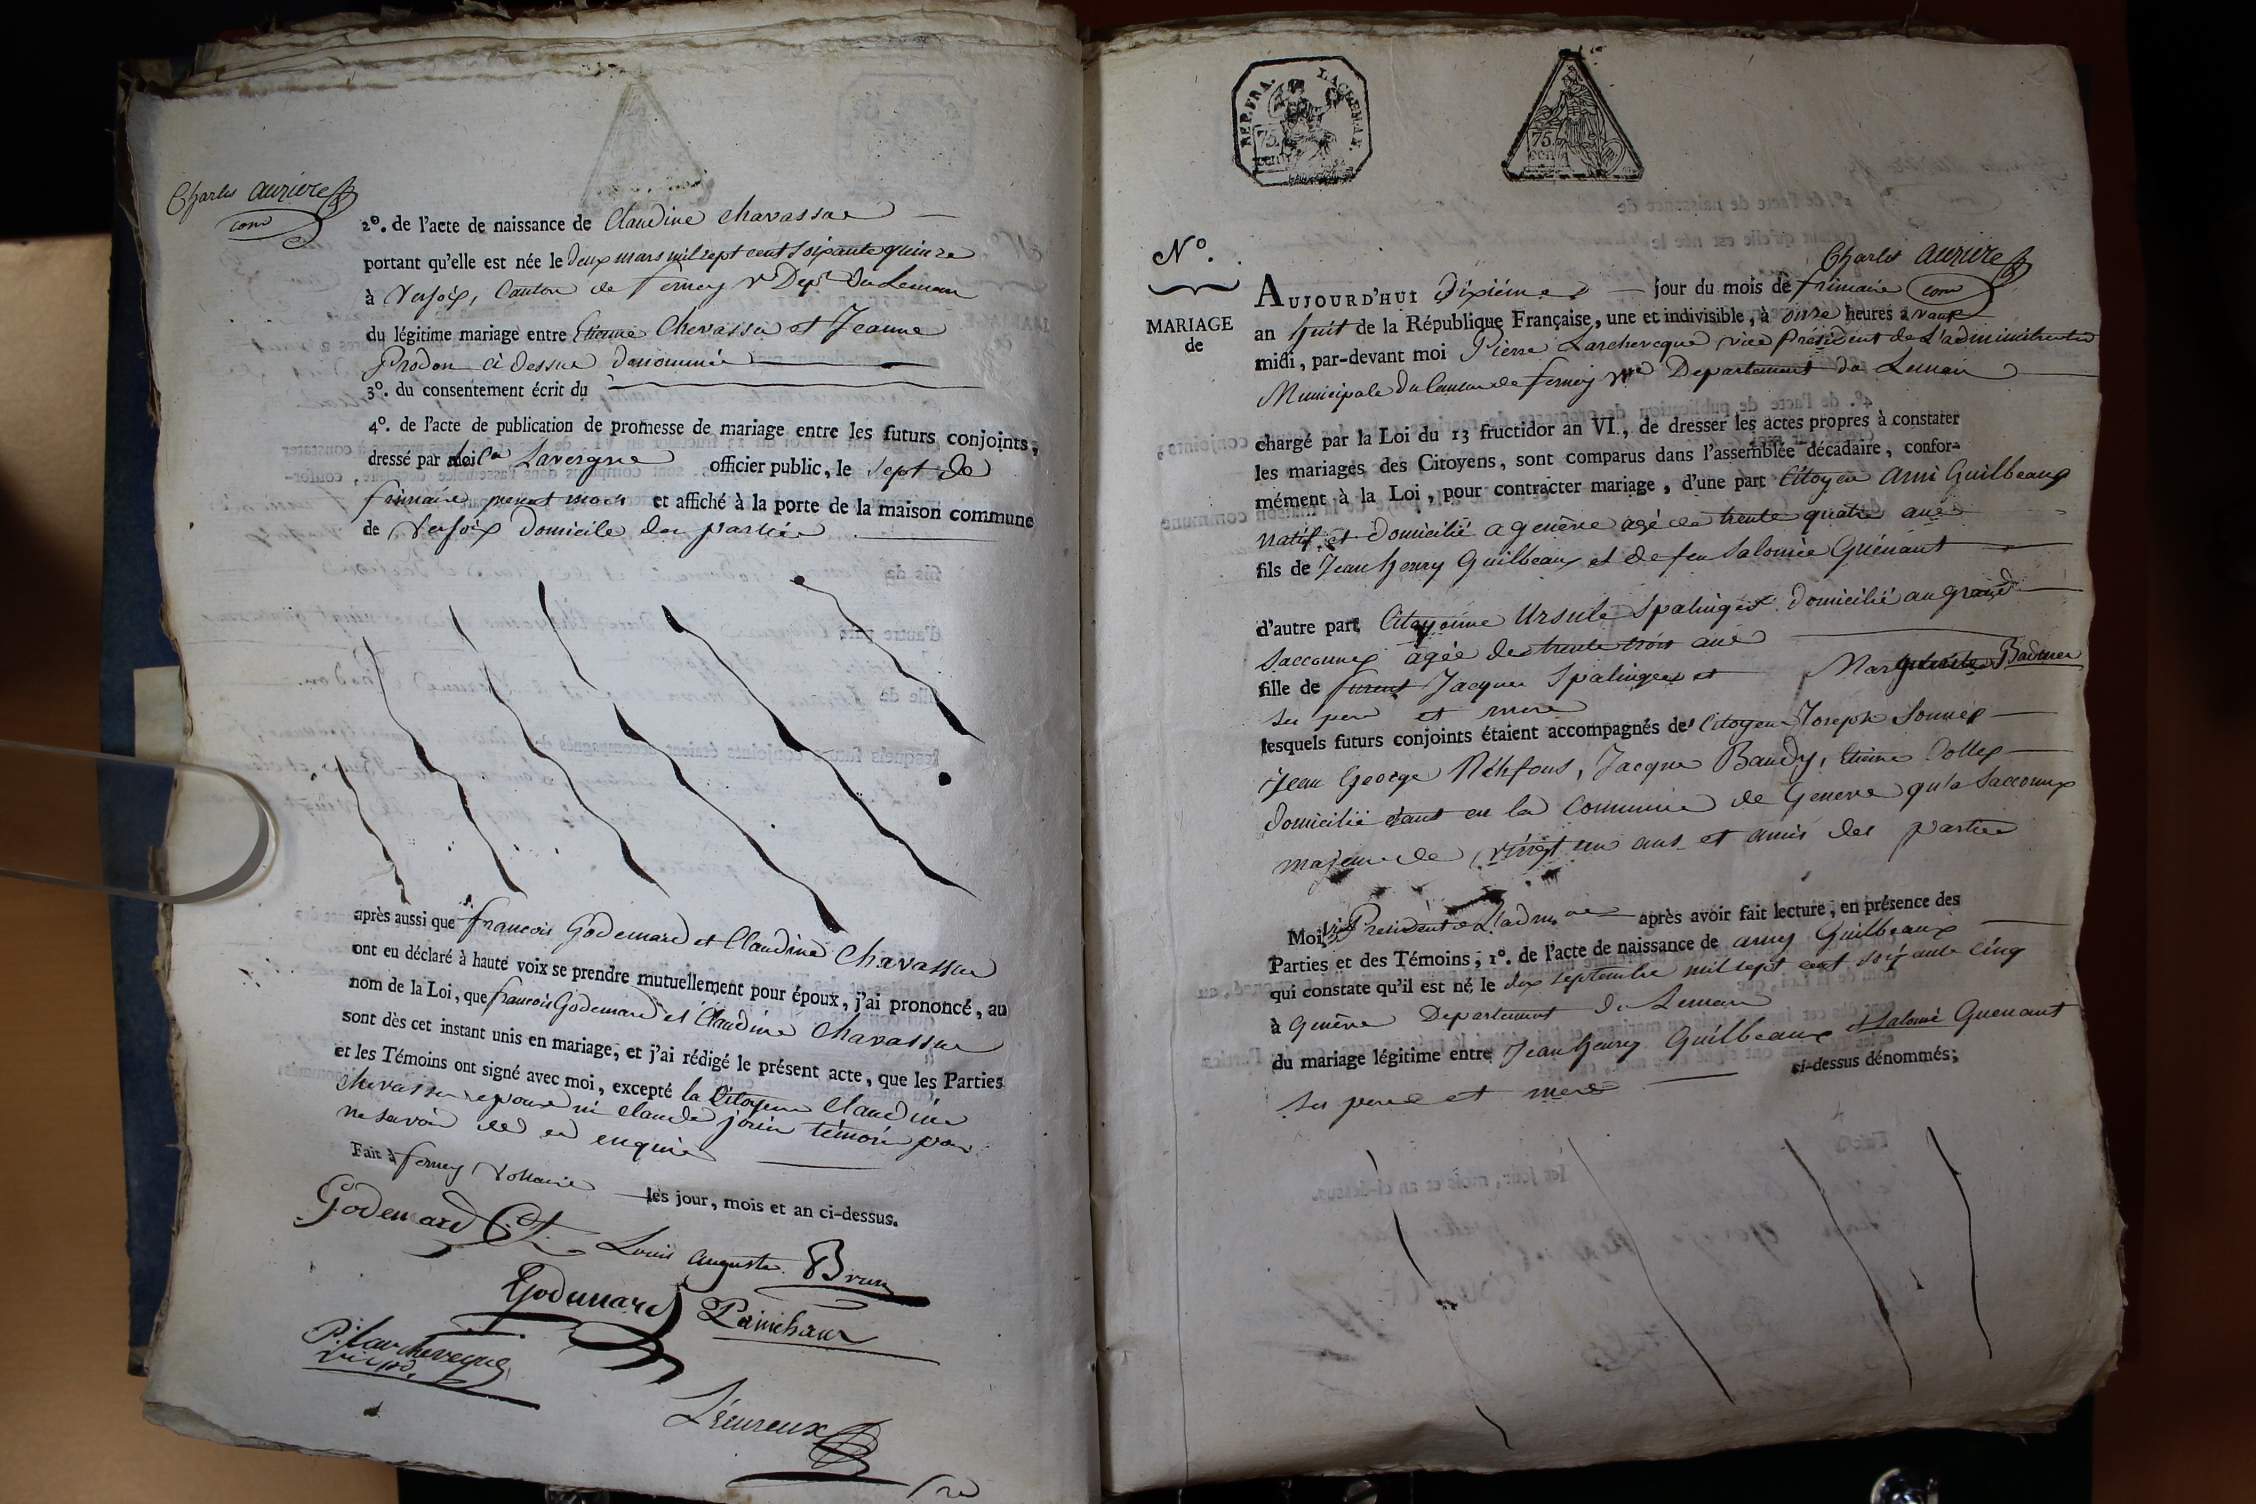 Charles auziere
com
2º. de l'acte de naissance de Claudine Chavassue
portant qu'elle est née le deux mars mil sept cent soixante quinze
à Versoix, Canton de ferney Vre Dept. du Leman
du légitime mariage entre Etienne Chevassu et Jeanne
Prodon ci dessus denommés
3º. du consentement écrit du
4º. de l'acte de publication de promesse de mariage entre les futurs conjoints,
dressé par Lavergne officier public, le sept de
frimaire present mois et affiché à la porte de la maison commune
de Versoix domicile des parties
après aussi que francois Godemard et Claudine Chavassue
ont eu déclaré à haute voix se prendre mutuellement pour époux, j'ai prononcé, au
nom de la Loi, que francois Godemard et Claudine Chavassue
sont dès cet instant unis en mariage, et j'ai rédigé le présent acte, que les Parties
et les Témoins ont signé avec moi, excepté la Citoyenne Claudine
chevassu epouse ni Claude jorin témoin pour
ne savoir de ce enquis
Fait à ferney Voltaire les jour, mois et an ci-dessus.
Godemard
Louis auguste Brun
Godemard
P. Larcheveque
vice pd.
Lécureux
REP. FRA.
75
cen
75.
cen
Nº.
Charles auziere
com
MARIAGE
de
AUJOURD'HUI dixieme jour du mois de frimaire
an huit de la République Française, une et indivisible, à onze heures avant
midi, par-devant moi Pierre Larcheveque vice Président de L'administration
Municipale du Canton de ferney Vre Departement du Leman
chargé par la Loi du 13 fructidor an VI., de dresser les actes propres à constater
les mariages des Citoyens, sont comparus dans l'assemblée décadaire, confor-
mément à la Loi, pour contracter mariage, d'une part Citoyen Ami Guilbeaux
natif et domicilié a genève agé de trente quatre ans
fils de Jean henry Guilbeaux et de feu Salomée Guénant
d'autre part Citoyenne Ursule Spalinger domicilié au grand
Sacconnex agée de trente trois ans
fille de Jacques Spalinger et Badmer
ses pere et mere
lesquels futurs conjoints étaient accompagnés de Citoyens Joseph Sonnex
Jean George Néhfous, Jacque Baudy, Etienne Dollex
domicilié étant en la Commune de Geneve qu'a Sacconnex
majeur de vingt un ans et amis des parties
Moi Vice President de L'adm.on après avoir fait lecture, en présence des
Parties et des Témoins, 1º. de l'acte de naissance de amy Guilbeaux
qui constate qu'il est né le dix septembre mil sept cent soixante cinq
à Genève Departement du Leman
du mariage légitime entre Jean henry Guilbeaux et Salomé Guenant
ses pere et mere ci-dessus dénommés;